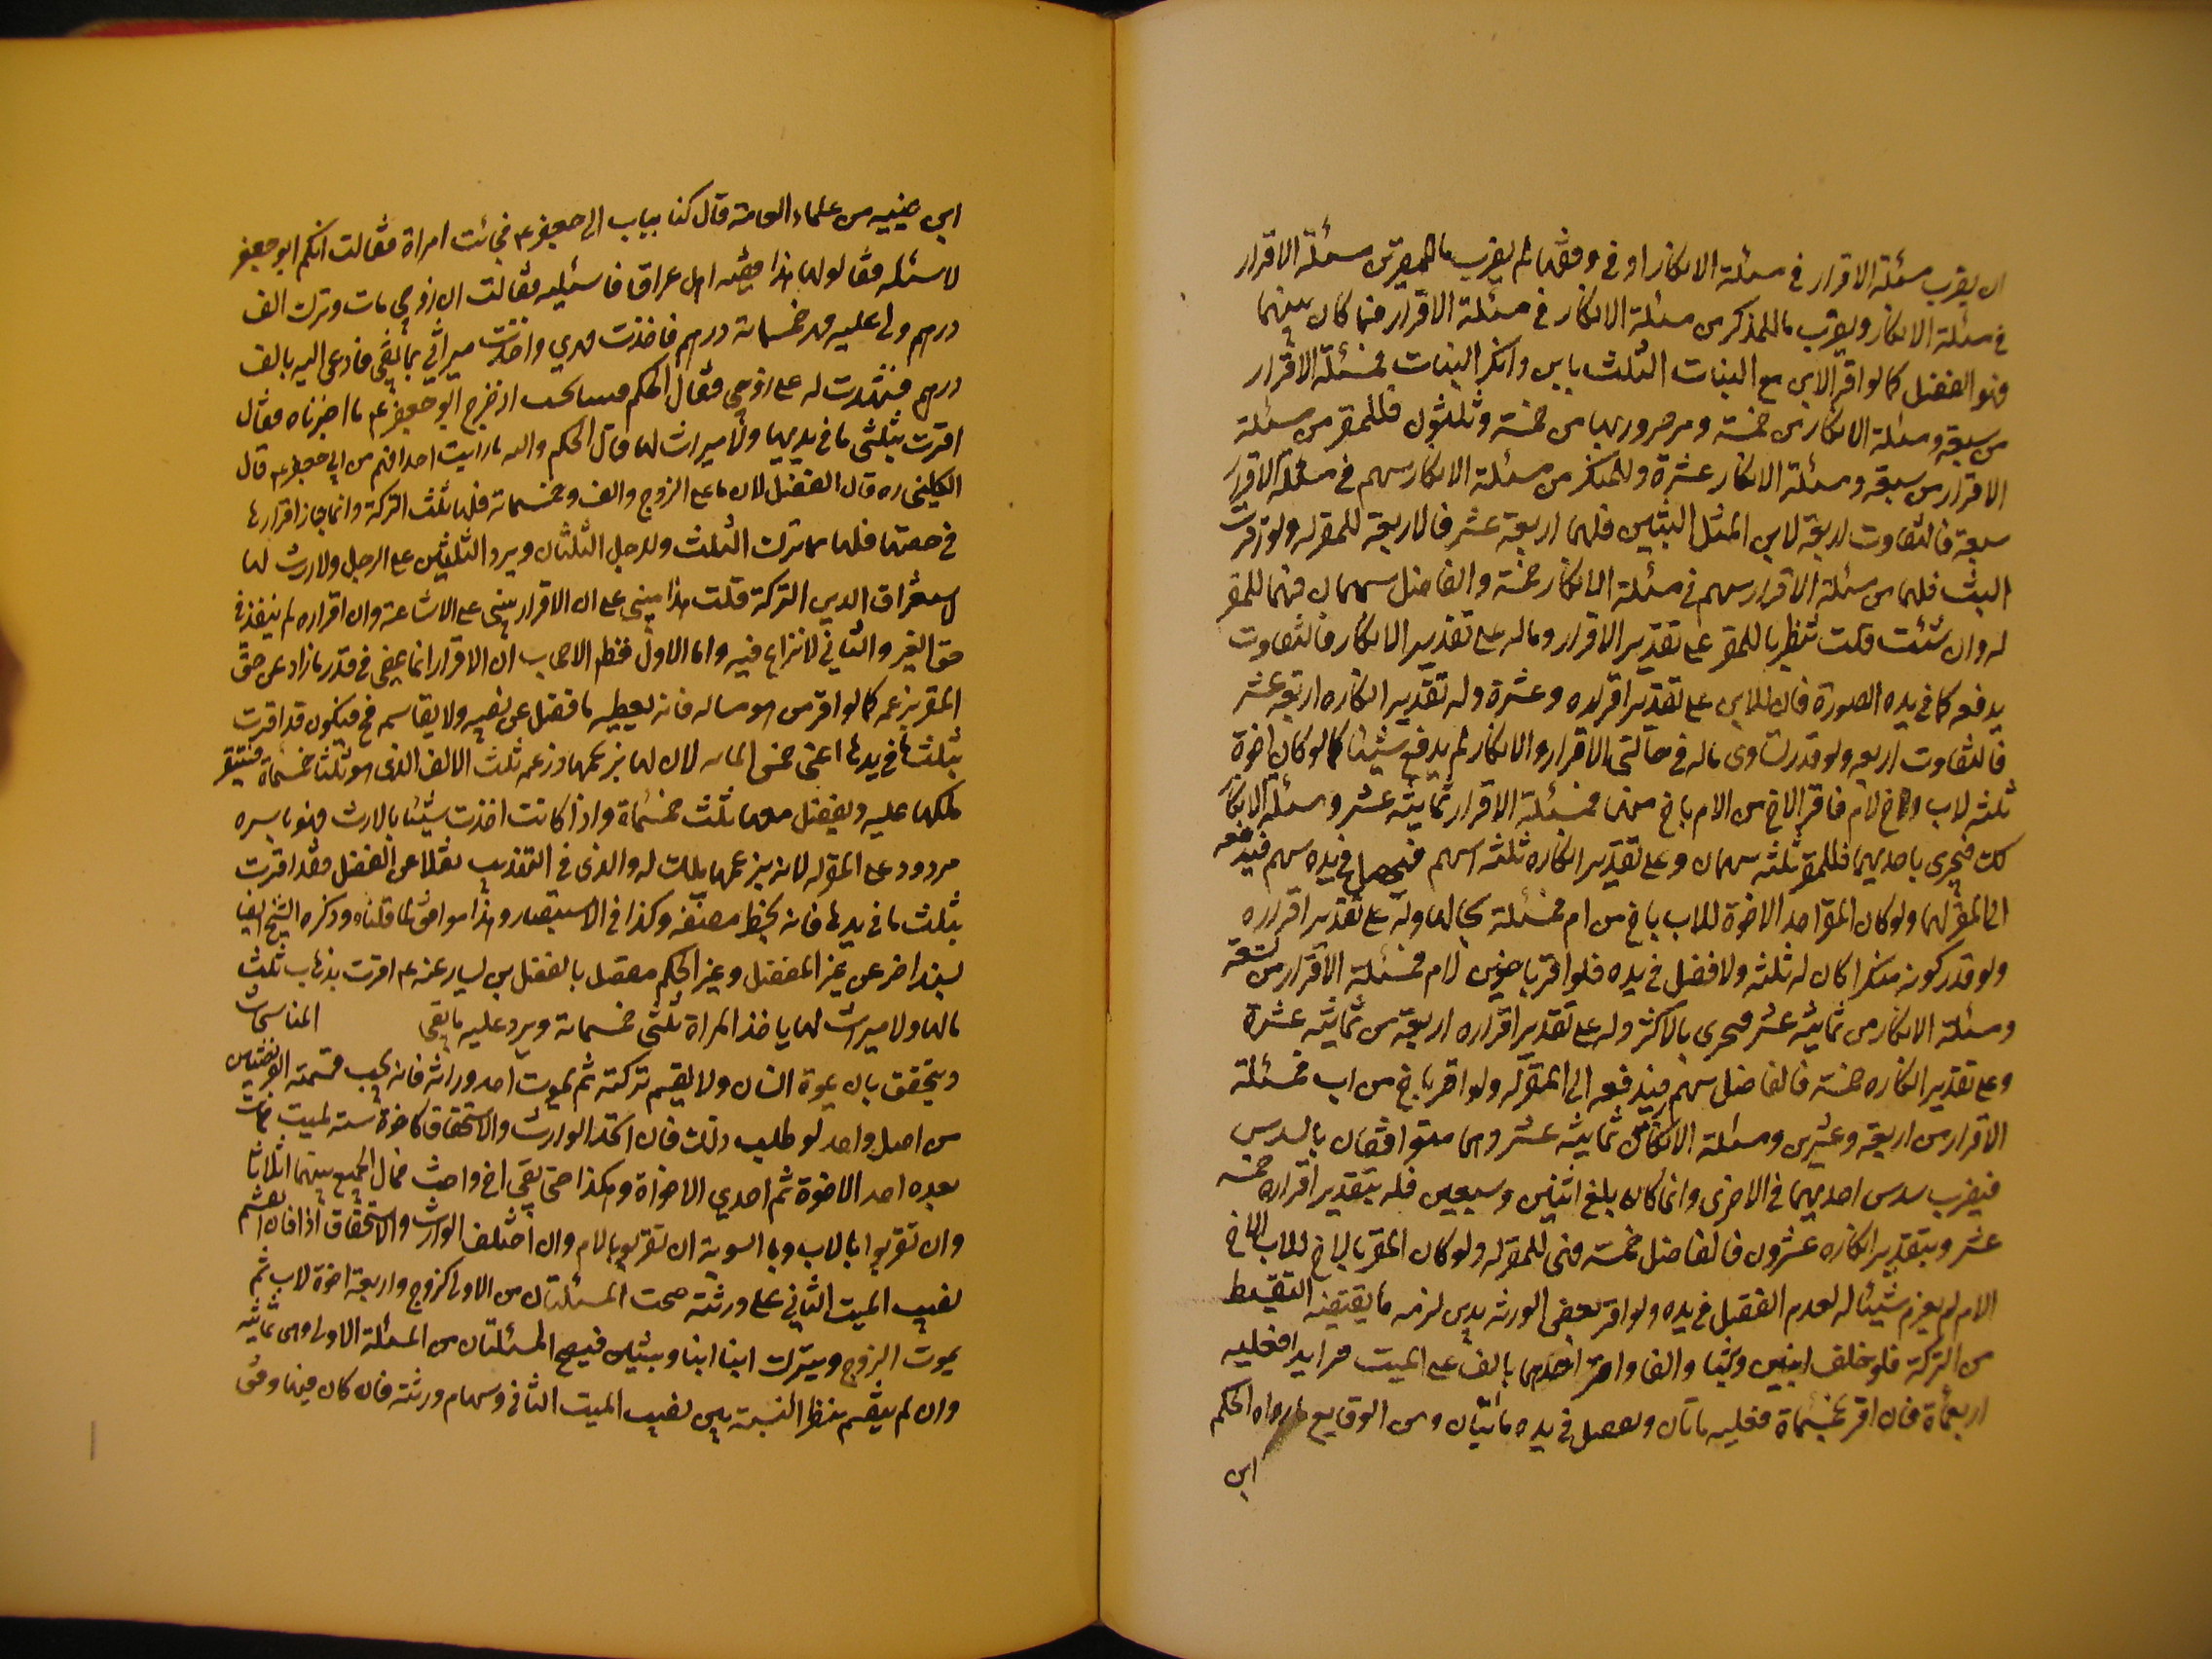 ان يضرب مسئلة الاقرار في مسئلة الانكار او في وفقها ثم يضرب ما للمقر من مسئلة الاقرار
في مسئلة الانكار ويضرب ما للمنكر من مسئلة الانكار في مسئلة الاقرار فما كان بينهما
فهو الفضل كما لو اقر الابن مع البنات الثلث بابن وانكر البنات فمسئلة الاقرار
من سبعة ومسئلة الانكار من خمسة ومضروبهما من خمسة وثلثون فللمقر من مسئلة
الاقرار من سبعة ومسئلة الانكار عشرة وللمنكر من مسئلة الانكار سهم في مسئلة الاقرار
سبعة فالتفاوت اربعة لابن المثل البنتين فلهما اربعة عشر فالاربعة للمقر له ولو اقرت
البنت فلها من مسئلة الاقرار سهم في مسئلة الانكار خمسة والفاضل سهمان فهما للمقر
له وان شئت قلت تنظر ما للمقر على تقدير الاقرار وماله على تقدير الانكار فالتفاوت
يدفعه كما في يده الصورة فان للابن على تقدير اقراره عشرة وله تقدير انكاره اربعة عشر
فالتفاوت اربعه ولو قدر تساوى ماله في حالتى الاقرار والانكار لم يدفع شيئا كما لو كان اخوة
ثلثه لاب واخ لام فاقر الاخ من الام باخ منهما فمسئلة الاقرار ثمانية عشر ومسئلة الانكار
كك فيجرى باحديهما فللمقر ثلثه سهمان وعلى تقدير انكاره ثلثه اسهم في يده سهم فيدفعه
الى المقر لهما ولو كان المقر احد الاخوة للاب باخ من ام فمسئلة بحالها وله على تقدير اقراره
ولو قدر كونه منكرا كان له ثلثه ولا فضل في يده فلو اقر باخوين لام فمسئلة الاقرار من تسعة
ومسئلة الانكار من ثمانية عشر فيجرى بالاكثر وله على تقدير اقراره اربعة من ثمانية عشرة
وعلى تقدير انكاره خمسة فالفاضل سهم فيدفعه الى المقر له ولو اقر باخ من اب فمسئلة
الاقرار من اربعة وعشرين ومسئلة الانكار من ثمانية عشر وهما متوافقان بالسدس
فيضرب سدس احديهما في الاخرى وانما كان بلغ اثنين وسبعين فله بتقدير اقراره خمسة
عشر وبتقدير انكاره عشرون فالفاضل خمسة فهى للمقر له ولو كان المقر بالاخ للاب الاخ
الام لم يغرم شيئا له لعدم الفضل في يده ولو اقر بعض الورثه بدين لزمه ما يقتضيه التقسيط
من التركة فلو خلف ابنين وبنتا والفا واقر احدهما بالف على الميت فعليه
اربعمأة فان اقر بخمسمأة فعليه مأتان وفضل في يده مأتيان ومن الوقايع ما رواه الحكم
ابن
ابن عيينه من علماء العامة قال كنا بباب ابى جعفر ع فجائت امراة فقالت ايكم ابو جعفر
لاسئله فقالو لها هذا فقيه اهل عراق فاسئليه فقالت ان زوجى مات وترك الف
درهم ولى عليه مهر خمسمائة درهم فاخذت مهرى واخذت ميراثى مما بقى فادعى اليه بالف
درهم فشهدت له على زوجى فقال الحكم فبينا نحسب اذ خرج ابو جعفر ع ما اخبرناه فقال
اقرت بثلثى ما في يديها ولا ميراث لها قال الحكم والله ما رايت احدا افهم من ابى جعفر ع قال
الكلينى ره قال الفضل لان ما على الزوج والف وخمسمائة فلها ثلث التركة وانما جاز اقرارها
في حصتها فلها مما ترك الثلث وللرجل الثلثان ويرد الثلثين على الرجل ولا ارث لها
لاستغراق الدين التركة قلت هذا مبنى على ان الاقرار يبنى على الاشاعة وان اقراره لم ينفذ في
حق الغير والثانى لا نزاع فيه واما الاول فنظر الاصحاب ان الاقرار انما يمضى في قدر ما زاد عن حق
المقر بزعمه كما لو اقر من هو مساله فانه يعطيه ما فضل عن نصيبه ولا يقاسمه فح فيكون قد اقرت
بثلث ما في يدها اعنى خمس المائه لان لها بزعمها وزعمه ثلث الالف الذى هو ثلثا خمسمأة فتستقر
ملكها عليه ويفضل معها ثلث خمسمأة واذا كانت اخذت شيئا بالارث فهو باسره
مردود على المقر له لانه بزعمها ملك له والذى في التهذيب نقلا عن الفضل فقد اقرت
بثلث ما في يدها فانه بخط مصنفه وكذا في الاستبصار وهذا موافق لما قلناه وذكره الشيخ ايضا
بسند اخر عن غير المفضل وغير الحكم متصل بالفضل بن يسار عنه ع اقرت بذهاب ثلث
مالها ولا ميراث لها ياخذ المراة ثلثى خمسمائة ويرد عليه ما بقى المناسخات
ويتحقق بان يموت انسان ولا يقسم تركته ثم يموت احد وراثه فانه يجب قسمته الفريضتين
من اصل واحد لو طلب ذلك فان اتحد الوارث والاستحقاق كاخوة ستة لميت فمات
بعده احد الاخوة ثم احدى الاخوات وهكذا حتى بقى اخ واخت فمال الجميع بينهما اثلاثا
وان تقربوا بالاب وبالسوية ان تقربوا بالام وان اختلف الوارث والاستحقاق اذا فان انقسم
نصيب الميت الثاني على ورثته صحت المسئلتان من الاولى كزوج واربعة اخوة لاب ثم
يموت الزوج ويترك ابنا ابنا وبنتين فيصح المسئلتان من المسئلة الاولى وهى ثمانية
وان لم ينقسم ينظر النسبة بين نصيب الميت الثانى وسهام ورثته فان كان فيها وفق